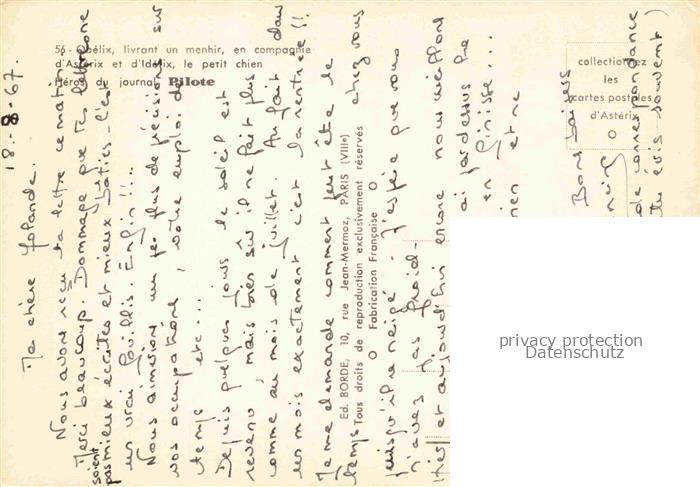 56 - Obélix, livrant un menhir, en compagnie
d'Astérix et d'Idéfix, le petit chien
Héros du journal Pilote
collectionnez
les
cartes postales
d'Astérix
Ed. BORDE, 10, rue Jean-Mermoz, PARIS (VIIIe)
Tous droits de reproduction exclusivement réservés
Fabrication Française
18-8-67.
Ma chère Yolande.
Nous avons reçu ta lettre ce matin
Merci beaucoup. Dommage que tes lettres ne
soient
pas mieux écrites et mieux bâties - c'est
un vrai fouillis. Enfin !!!.
Nous aimerions un peu plus de précisions sur
vos occupations, votre emploi du
temps etc...
Depuis quelques jours le soleil est
revenu, mais bien sûr il ne fait plus
comme au mois de juillet. Au fait dans
un mois exactement c'est la rentrée !!
Je me demande comment peut être le
temps chez vous
puisqu'il neige. J'espère que vous
n'avez pas froid -
Hier et aujourd'hui encore nous
ai pardessus
en finisse...
rien et ne
Bons baisers
de correspondance
(tu écris souvent)
privacy protection
Datenschutz